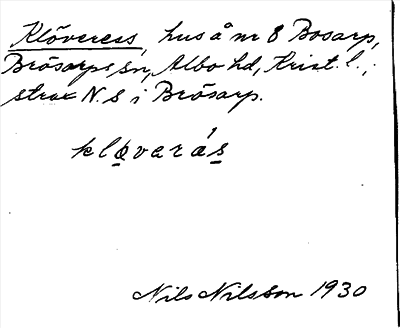 Klöveress, hus å nr 8 Bosarp,
Brösarps sn, Albo hd, Krist. l.,
strax N. S i Brösarp.
kløvarás
Nils Nilsson 1930